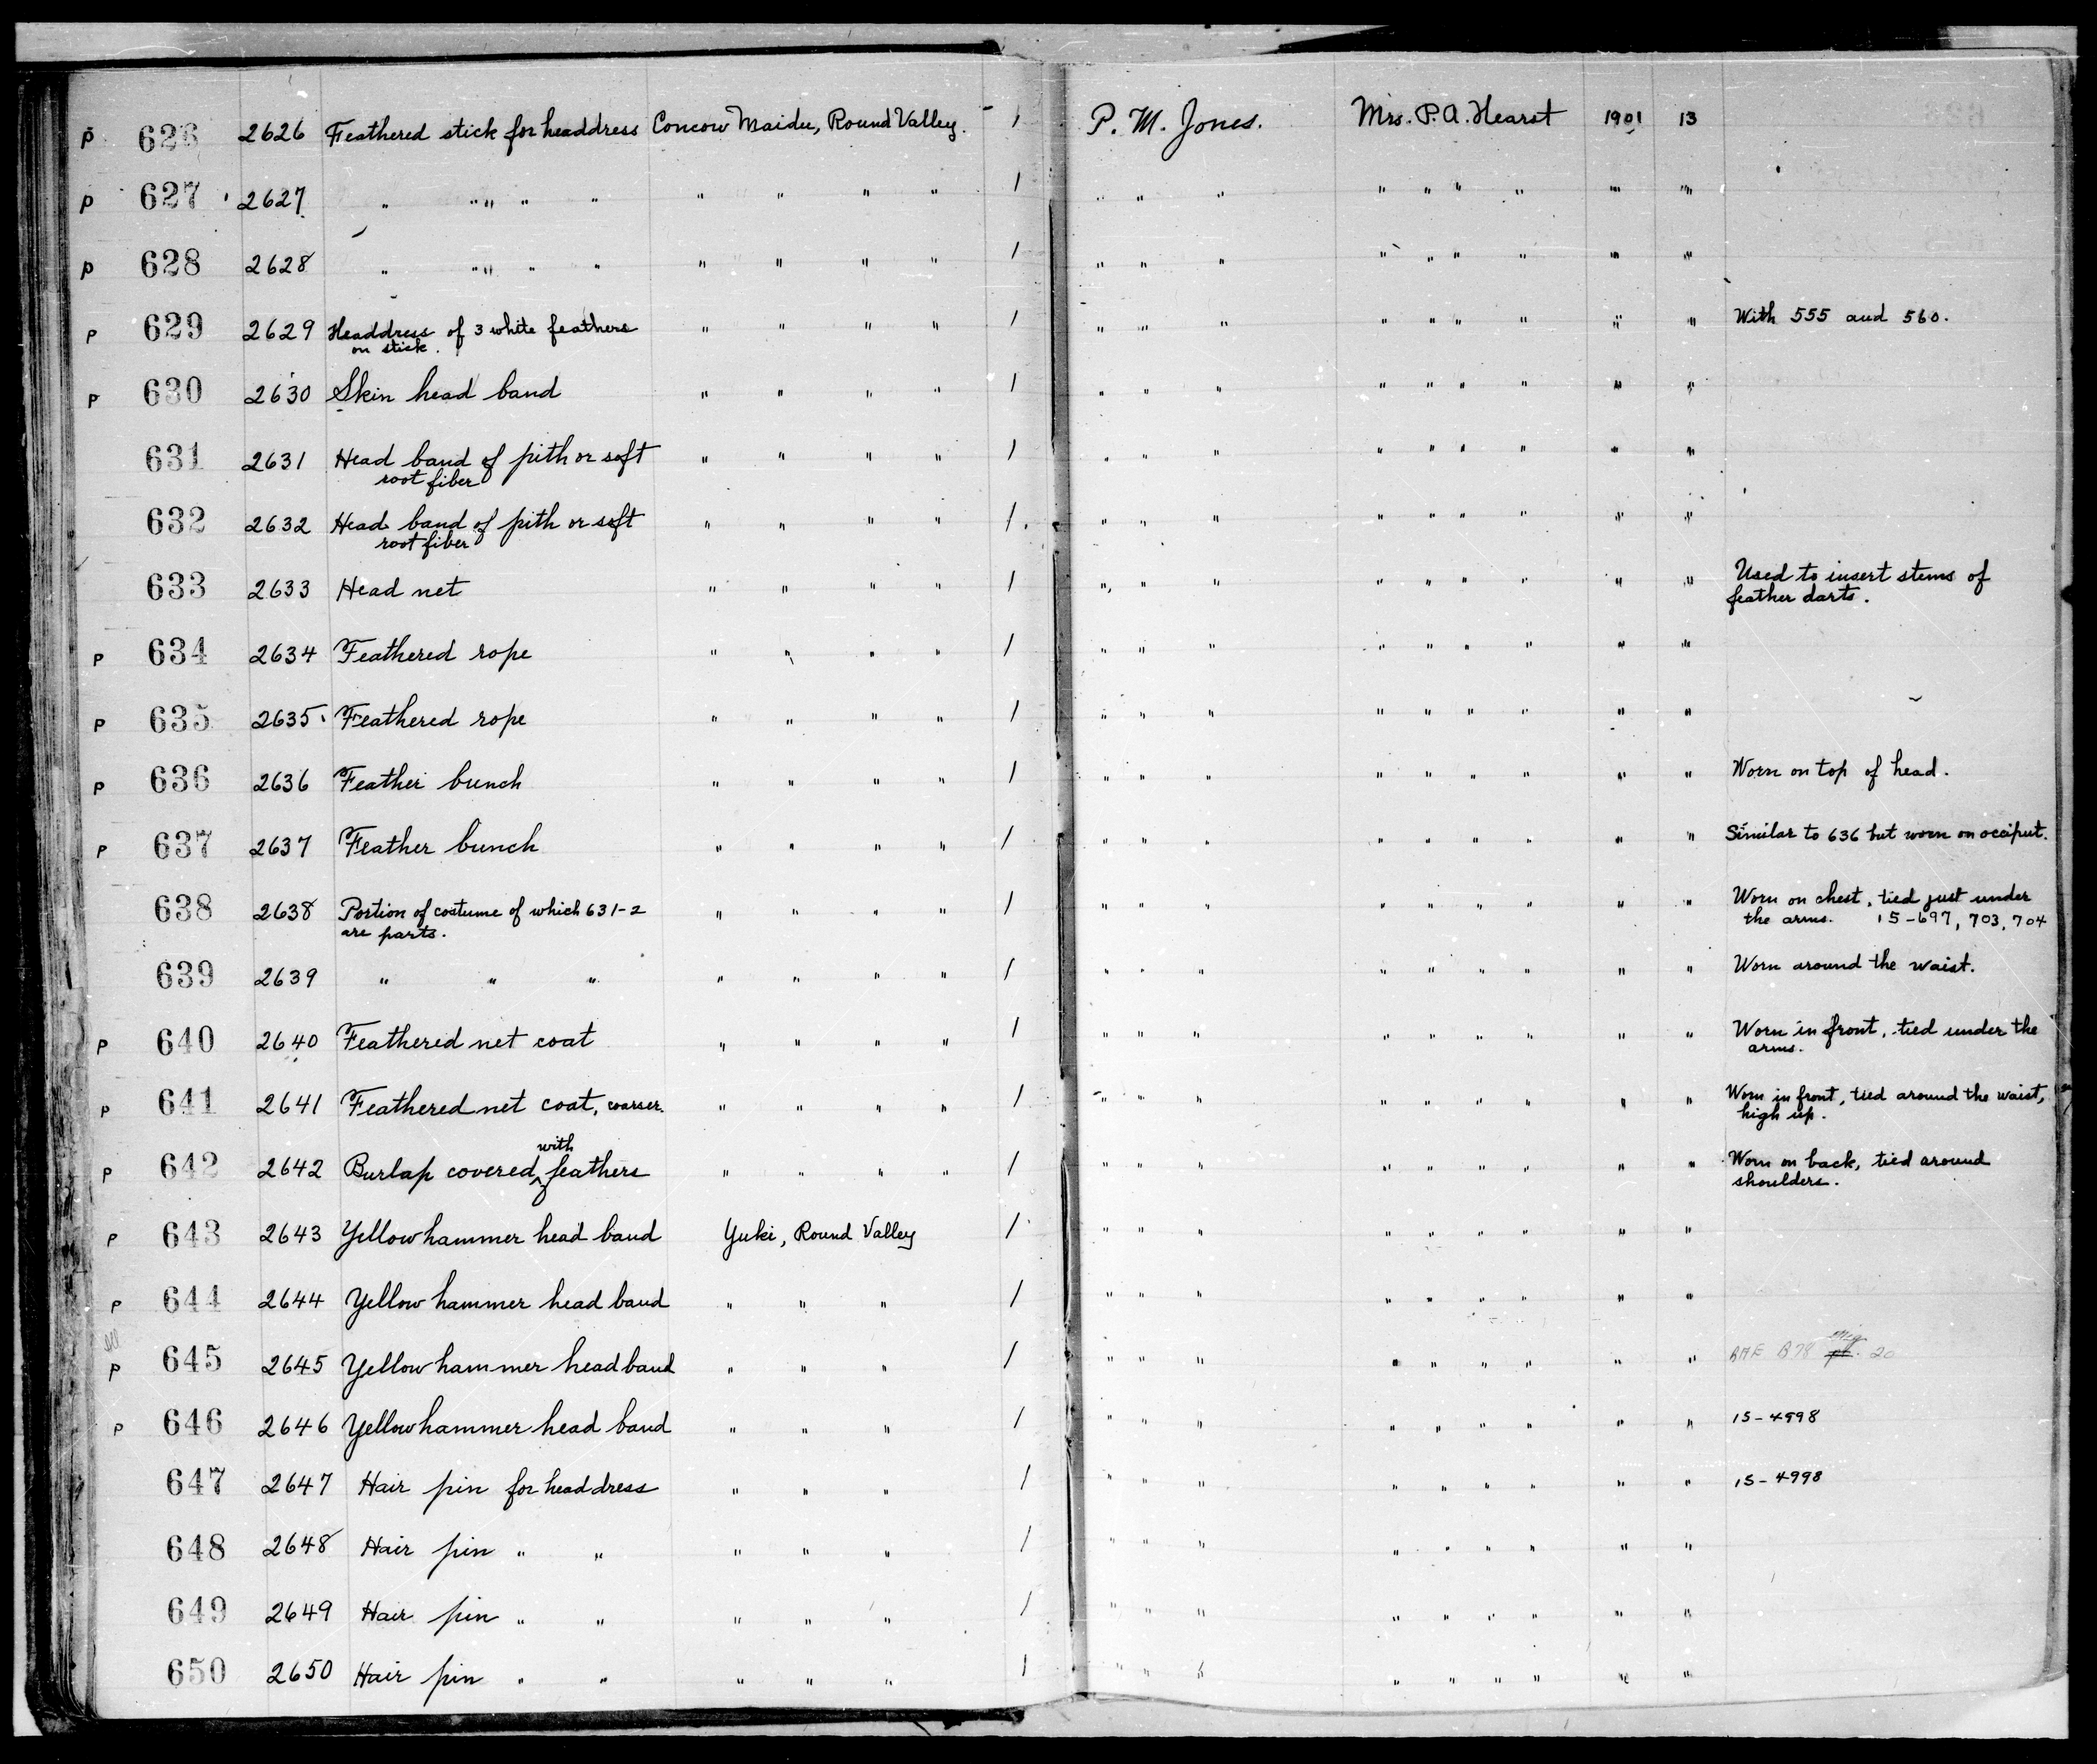 P 626 2626 Feathered stick for headdress Concow Maidu, Round Valley. 1 P. M. Jones. Mrs. P. A. Hearst 1901 13
P 627 2627 " " " " " " " " " 1 " " " " " " " " "
P 628 2628 " " " " " " " " " 1 " " " " " " " " "
P 629 2629 Headdress of 3 white feathers " " " " 1 " " " " " " " " " With 555 and 560.
on stick.
P 630 2630 Skin head band " " " " 1 " " " " " " " " "
631 2631 Head band of pith or soft " " " " 1 " " " " " " " " "
root fiber
632 2632 Head band of pith or soft " " " " 1 " " " " " " " " "
root fiber
633 2633 Head net " " " " 1 " " " " " " " " " Used to insert stems of
feather darts.
P 634 2634 Feathered rope " " " " 1 " " " " " " " " "
P 635 2635 Feathered rope " " " " 1 " " " " " " " " "
P 636 2636 Feather bunch " " " " 1 " " " " " " " " " Worn on top of head.
P 637 2637 Feather bunch " " " " 1 " " " " " " " " " Similar to 636 but worn on occiput.
638 2638 Portion of costume of which 631-2 " " " " 1 " " " " " " " " " Worn on chest, tied just under
are parts. the arms. 15-697, 703, 704
639 2639 " " " " " " " 1 " " " " " " " " " Worn around the waist.
P 640 2640 Feathered net coat " " " " 1 " " " " " " " " " Worn in front, tied under the
arms.
P 641 2641 Feathered net coat, coarser. " " " " 1 " " " " " " " " " Worn in front, tied around the waist,
high up.
P 642 2642 Burlap covered with feathers " " " " 1 " " " " " " " " " Worn on back, tied around
shoulders.
P 643 2643 Yellowhammer head band Yuki, Round Valley 1 " " " " " " " " "
P 644 2644 Yellowhammer head band " " " 1 " " " " " " " " "
P 645 2645 Yellowhammer head band " " " 1 " " " " " " " " " BAE B78 20
P 646 2646 Yellowhammer head band " " " 1 " " " " " " " " " 15-4998
647 2647 Hair pin for headdress " " " 1 " " " " " " " " " 15-4998
648 2648 Hair pin " " " " " 1 " " " " " " " " "
649 2649 Hair pin " " " " " 1 " " " " " " " " "
650 2650 Hair pin " " " " " 1 " " " " " " " " "